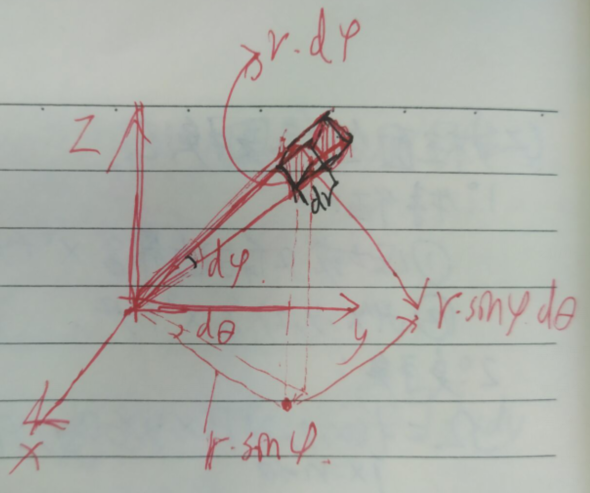 r·dφ
Z
dr
dφ
r·sinφ dθ
dθ
y
r·sinφ
x